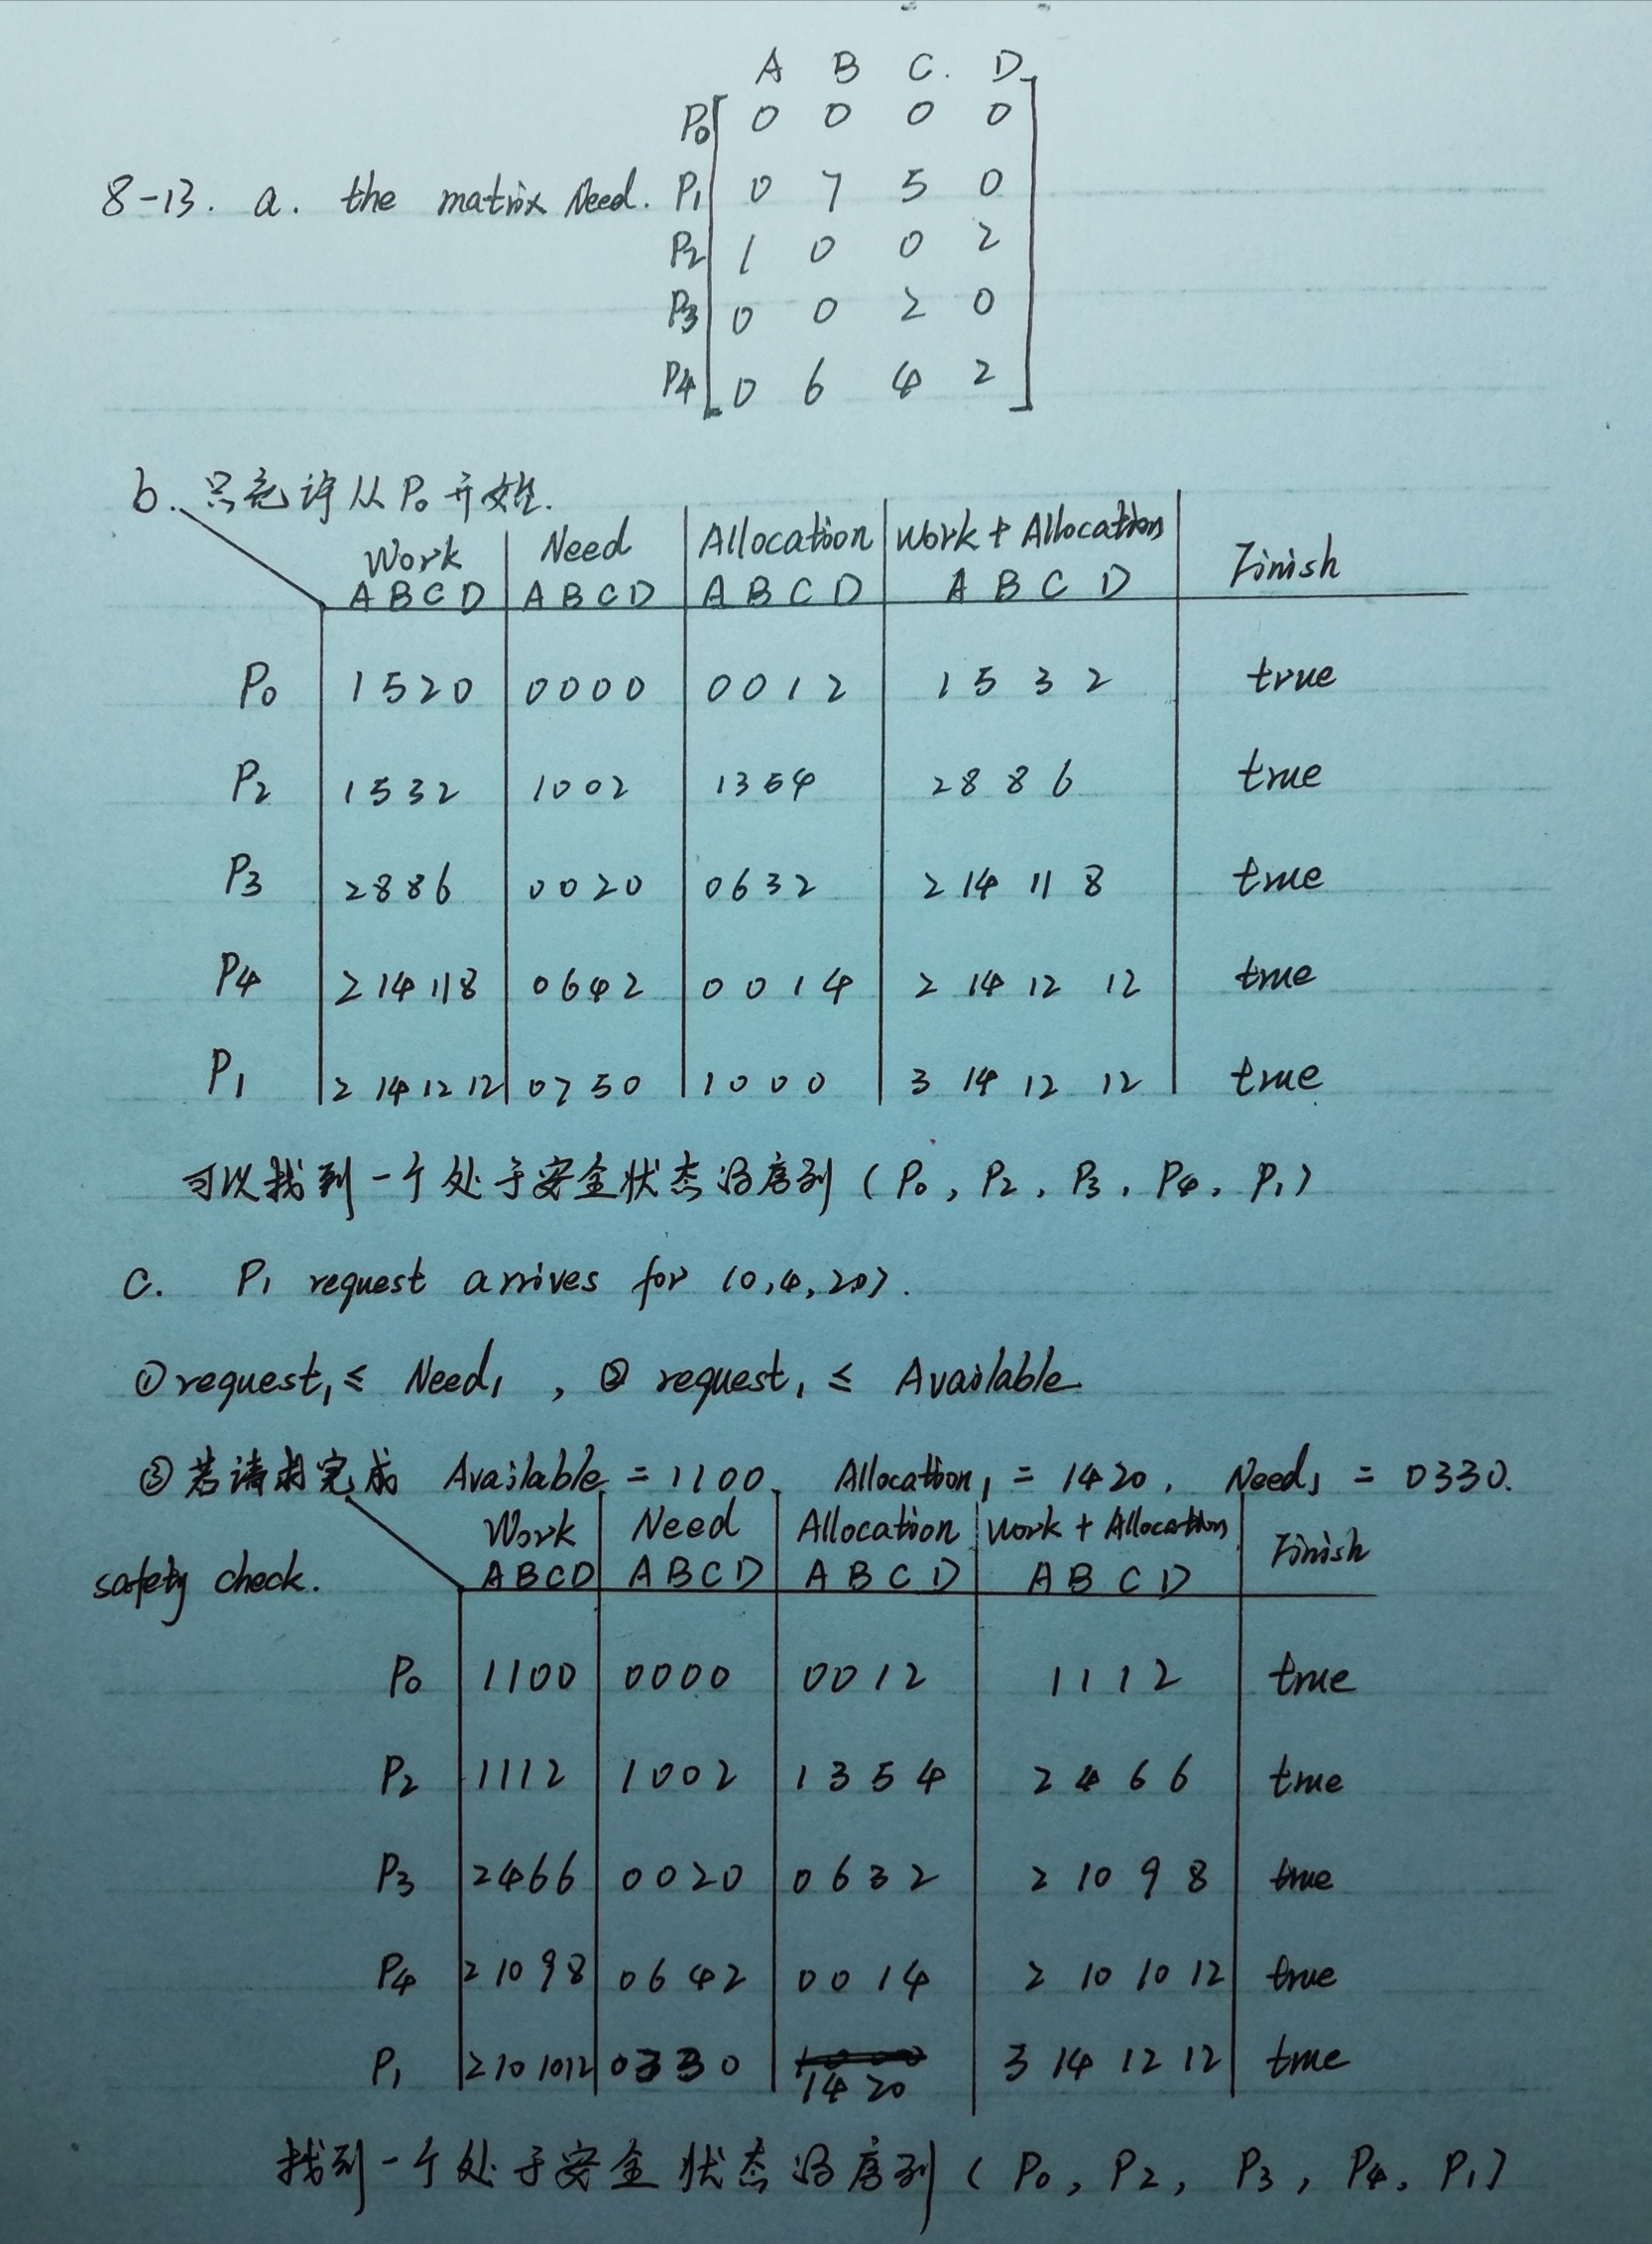 A B C. D
P0 0 0 0 0
8-13. a. the matrix Need. P1 0 7 5 0
P2 1 0 0 2
P3 0 0 2 0
P4 0 6 4 2
b. 只允许从P0开始.
Work Need Allocation Work + Allocation Finish
A B C D A B C D A B C D A B C D
P0 1 5 2 0 0 0 0 0 0 0 1 2 1 5 3 2 true
P2 1 5 3 2 1 0 0 2 1 3 5 4 2 8 8 6 true
P3 2 8 8 6 0 0 2 0 0 6 3 2 2 14 11 8 true
P4 2 14 11 8 0 6 4 2 0 0 1 4 2 14 12 12 true
P1 2 14 12 12 0 7 5 0 1 0 0 0 3 14 12 12 true
可以找到一个处于安全状态的序列 (P0, P2, P3, P4, P1)
C. P1 request arrives for (0,4,2,0).
① request1 ≤ Need1 , ② request1 ≤ Available
③ 若请求完成 Available = 1100, Allocation1 = 1420, Need1 = 0330.
Work Need Allocation Work + Allocation Finish
safety check. A B C D A B C D A B C D A B C D
P0 1 1 0 0 0 0 0 0 0 0 1 2 1 1 1 2 true
P2 1 1 1 2 1 0 0 2 1 3 5 4 2 4 6 6 true
P3 2 4 6 6 0 0 2 0 0 6 3 2 2 10 9 8 true
P4 2 10 9 8 0 6 4 2 0 0 1 4 2 10 10 12 true
P1 2 10 10 12 0 3 3 0 1 4 2 0 3 14 12 12 true
找到一个处于安全状态的序列 (P0, P2, P3, P4, P1)